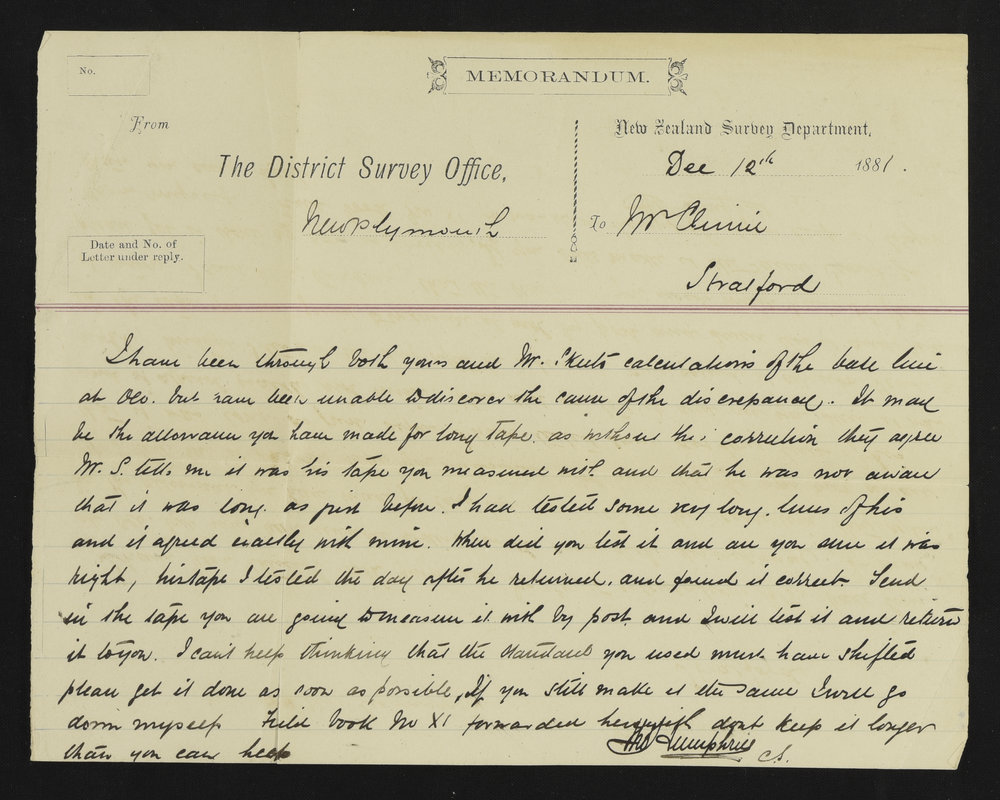 No.
MEMORANDUM.
From
New Zealand Survey Department,
The District Survey Office,
Dec 12th 1881.
New Plymouth
To Mr Climie
Date and No. of
Letter under reply.
Stratford
I have been through both yours and Mr. Skeets calculations of the base line
at Oeo. but have been unable to discover the cause of the discrepancy. It may
be the allowance you have made for long tape, as without this correction they agree
Mr. S. tells me it was his tape you measured with and that he was not aware
that it was long. as just before I had tested some very long lines of his
and it agreed exactly with mine. When did you test it and are you sure it was
right, his tape I tested the day after he returned, and found it correct. Send
in the tape you are going to measure it with by post and I will test it and return
it to you. I cant help thinking that the standard you used must have shifted
please get it done as soon as possible, If you still make it the same I will go
down myself Field book No XI forwarded herewith dont keep it longer
than you can help
Thos Humphries
C.S.